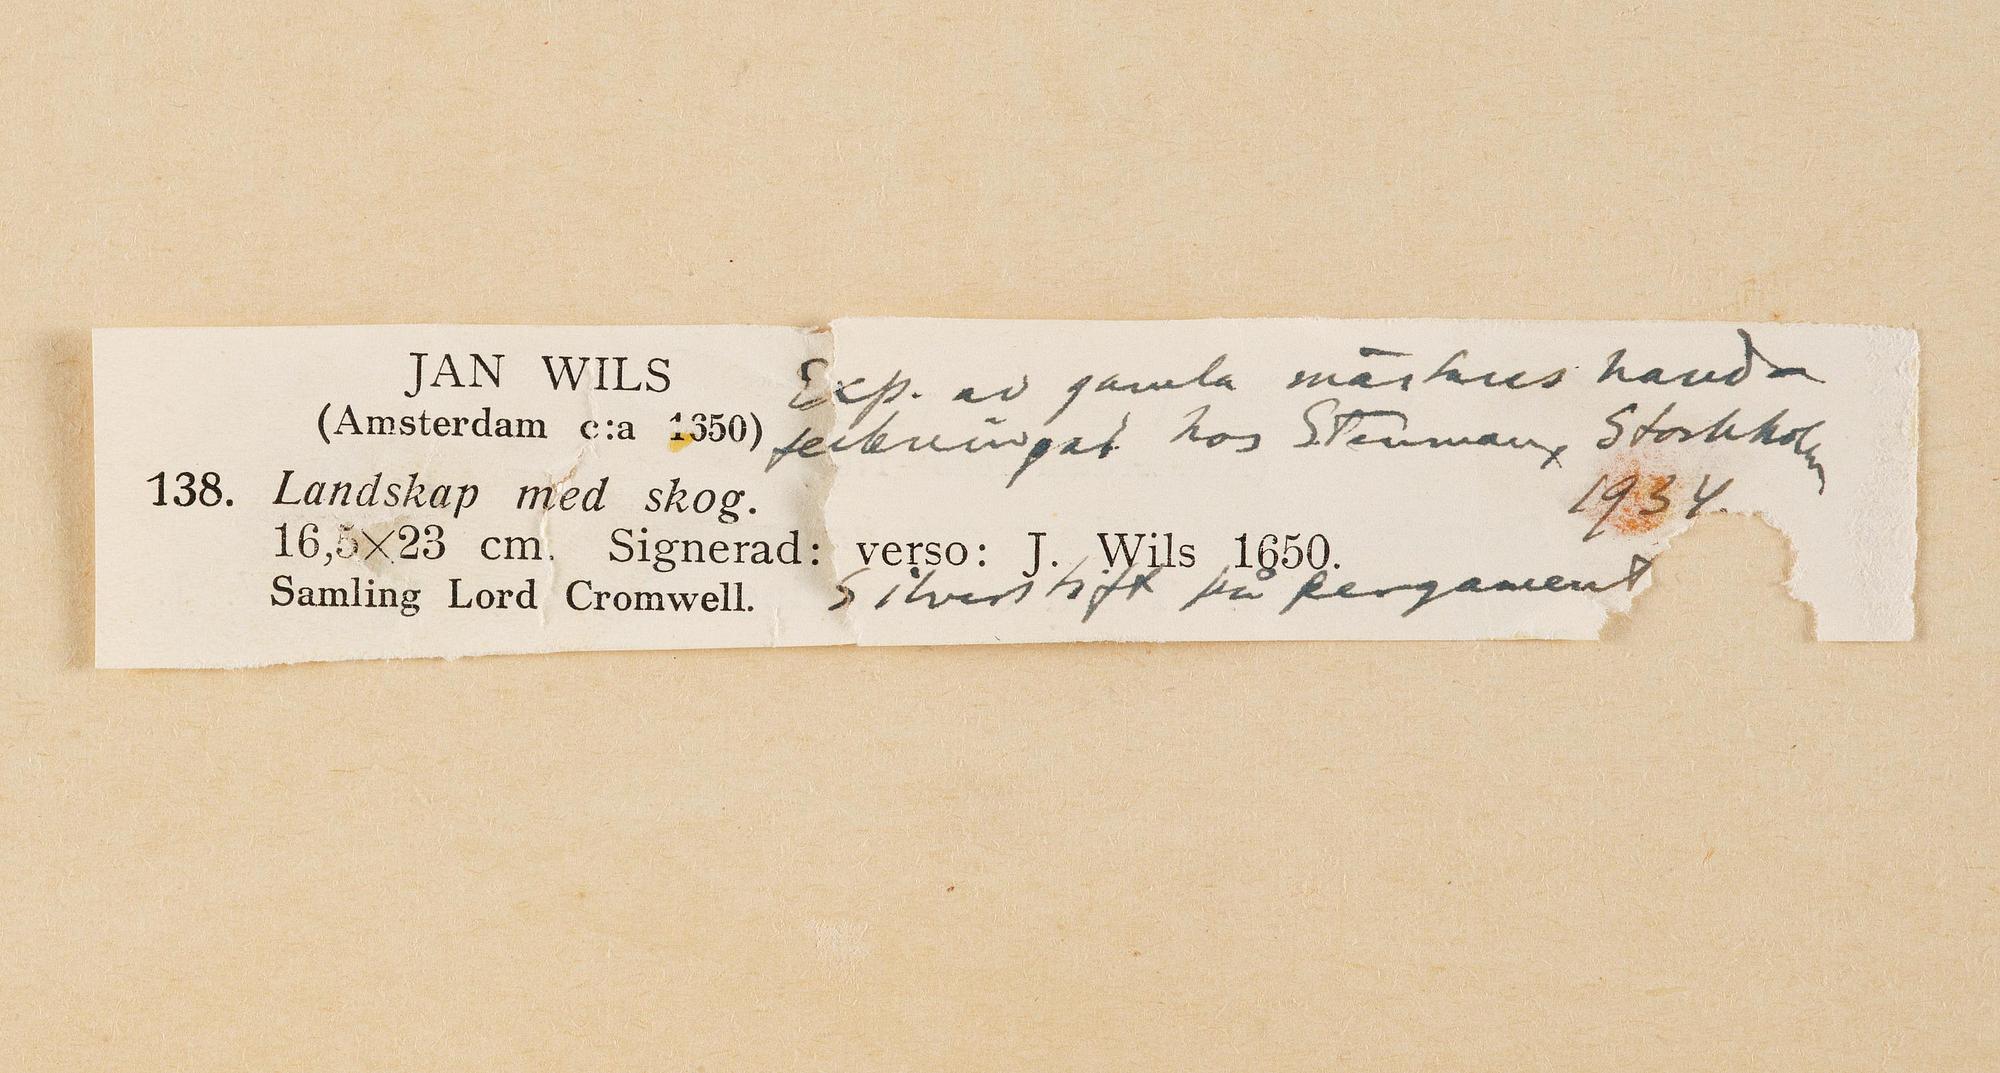 JAN WILS
(Amsterdam c:a 1650)
138. Landskap med skog.
16,5×23 cm. Signerad: verso: J. Wils 1650.
Samling Lord Cromwell.
Exp. av gamla mästares handa
teckningar hos Stenman, Stockholm
1934.
Silverstift på pergament